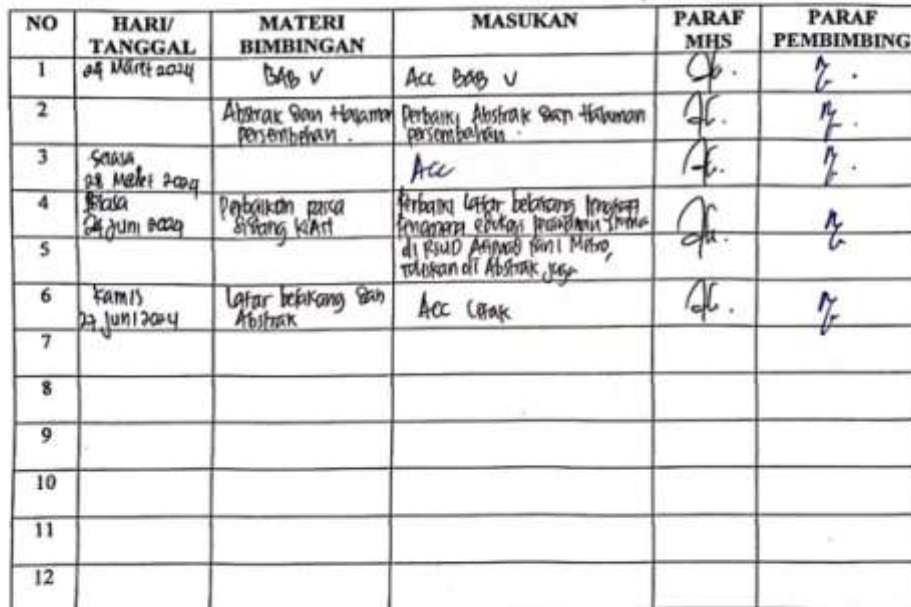 NO HARI/ TANGGAL MATERI BIMBINGAN MASUKAN PARAF MHS PARAF PEMBIMBING
1 Maret 2024 BAB V Acc BAB V
2 Abstrak dan Halaman persembahan. Perbaiki Abstrak dan Halaman persembahan.
3 Selasa 28 Maret 2024 Acc
4 Juni 2024 Perbaikan pasca sidang Perbaiki latar belakang
5 di RSUD Metro, tuliskan di Abstrak juga
6 Kamis 27 Juni 2024 Latar belakang dan Abstrak Acc Cetak
7
8
9
10
11
12